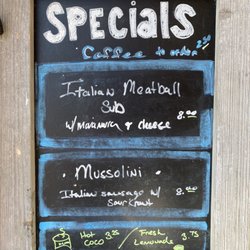 SPECIALS
Coffee to order 2.50
Italian Meatball
Sub
w/ Marinara & cheese 8.00
· Mussolini ·
Italian sausage w/ 8.00
Sour Kraut
Hot 3.25 / Fresh
Coco Lemonade 3.75